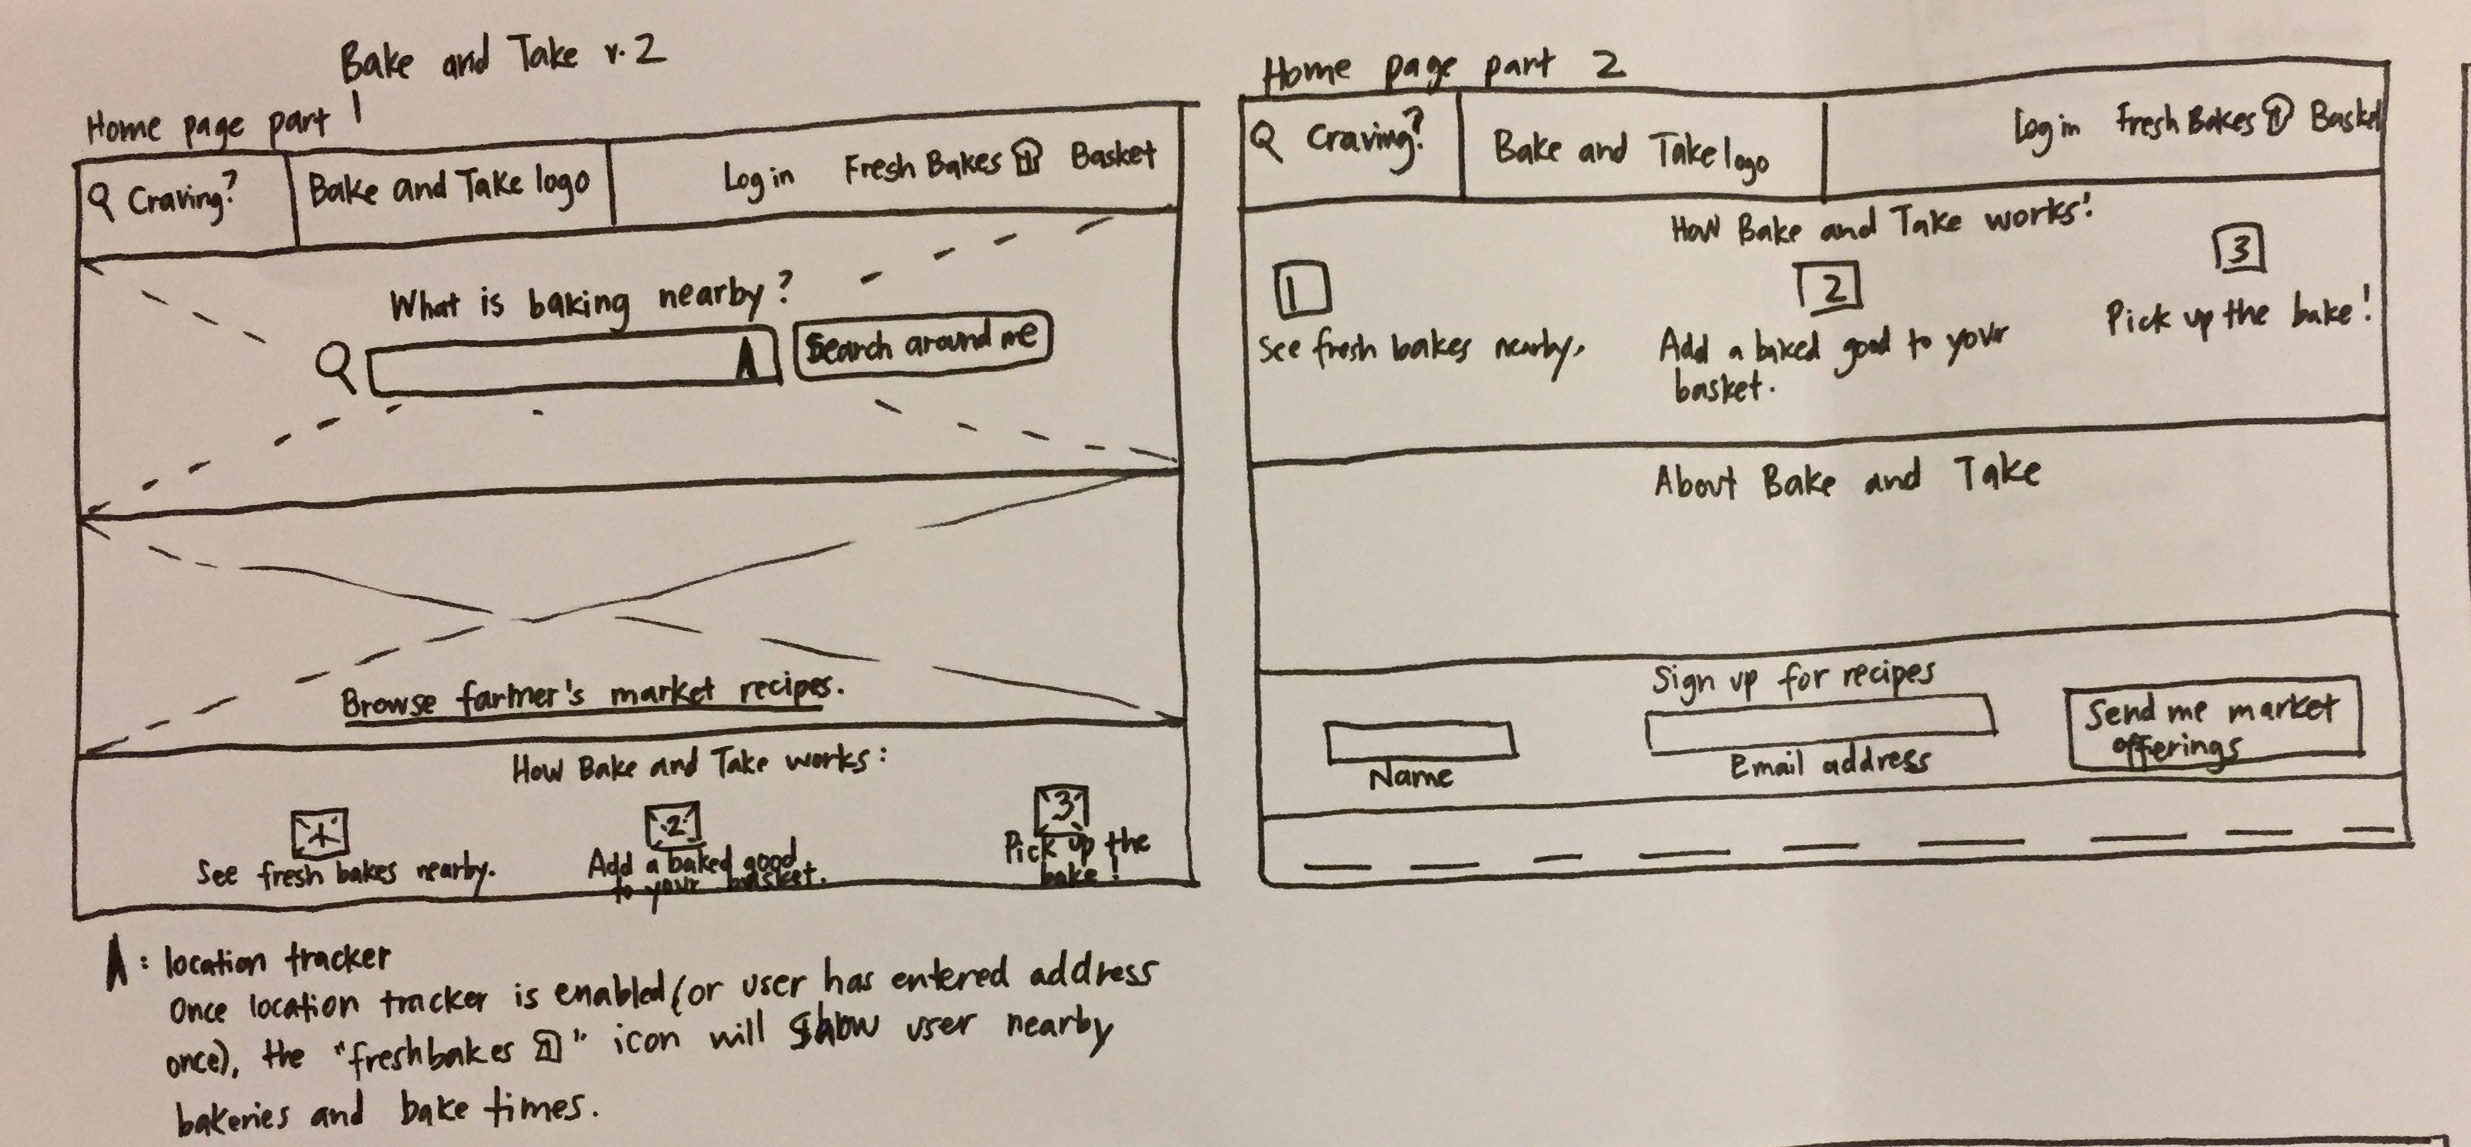 Bake and Take v.2
Home page part 1
Craving?
Bake and Take logo
Log in
Fresh Bakes
1
Basket
What is baking nearby?
Search around me
Browse farmer's market recipes.
How Bake and Take works:
1
2
3
See fresh bakes nearby.
Add a baked good
to your basket.
Pick up the
bake!
A: location tracker
Once location tracker is enabled (or user has entered address
once), the "freshbakes 1" icon will show user nearby
bakeries and bake times.
Home page part 2
Craving?
Bake and Take logo
Log in
Fresh Bakes
1
Basket
How Bake and Take works:
1
2
3
See fresh bakes nearby.
Add a baked good to your
basket.
Pick up the bake!
About Bake and Take
Sign up for recipes
Name
Email address
Send me market
offerings